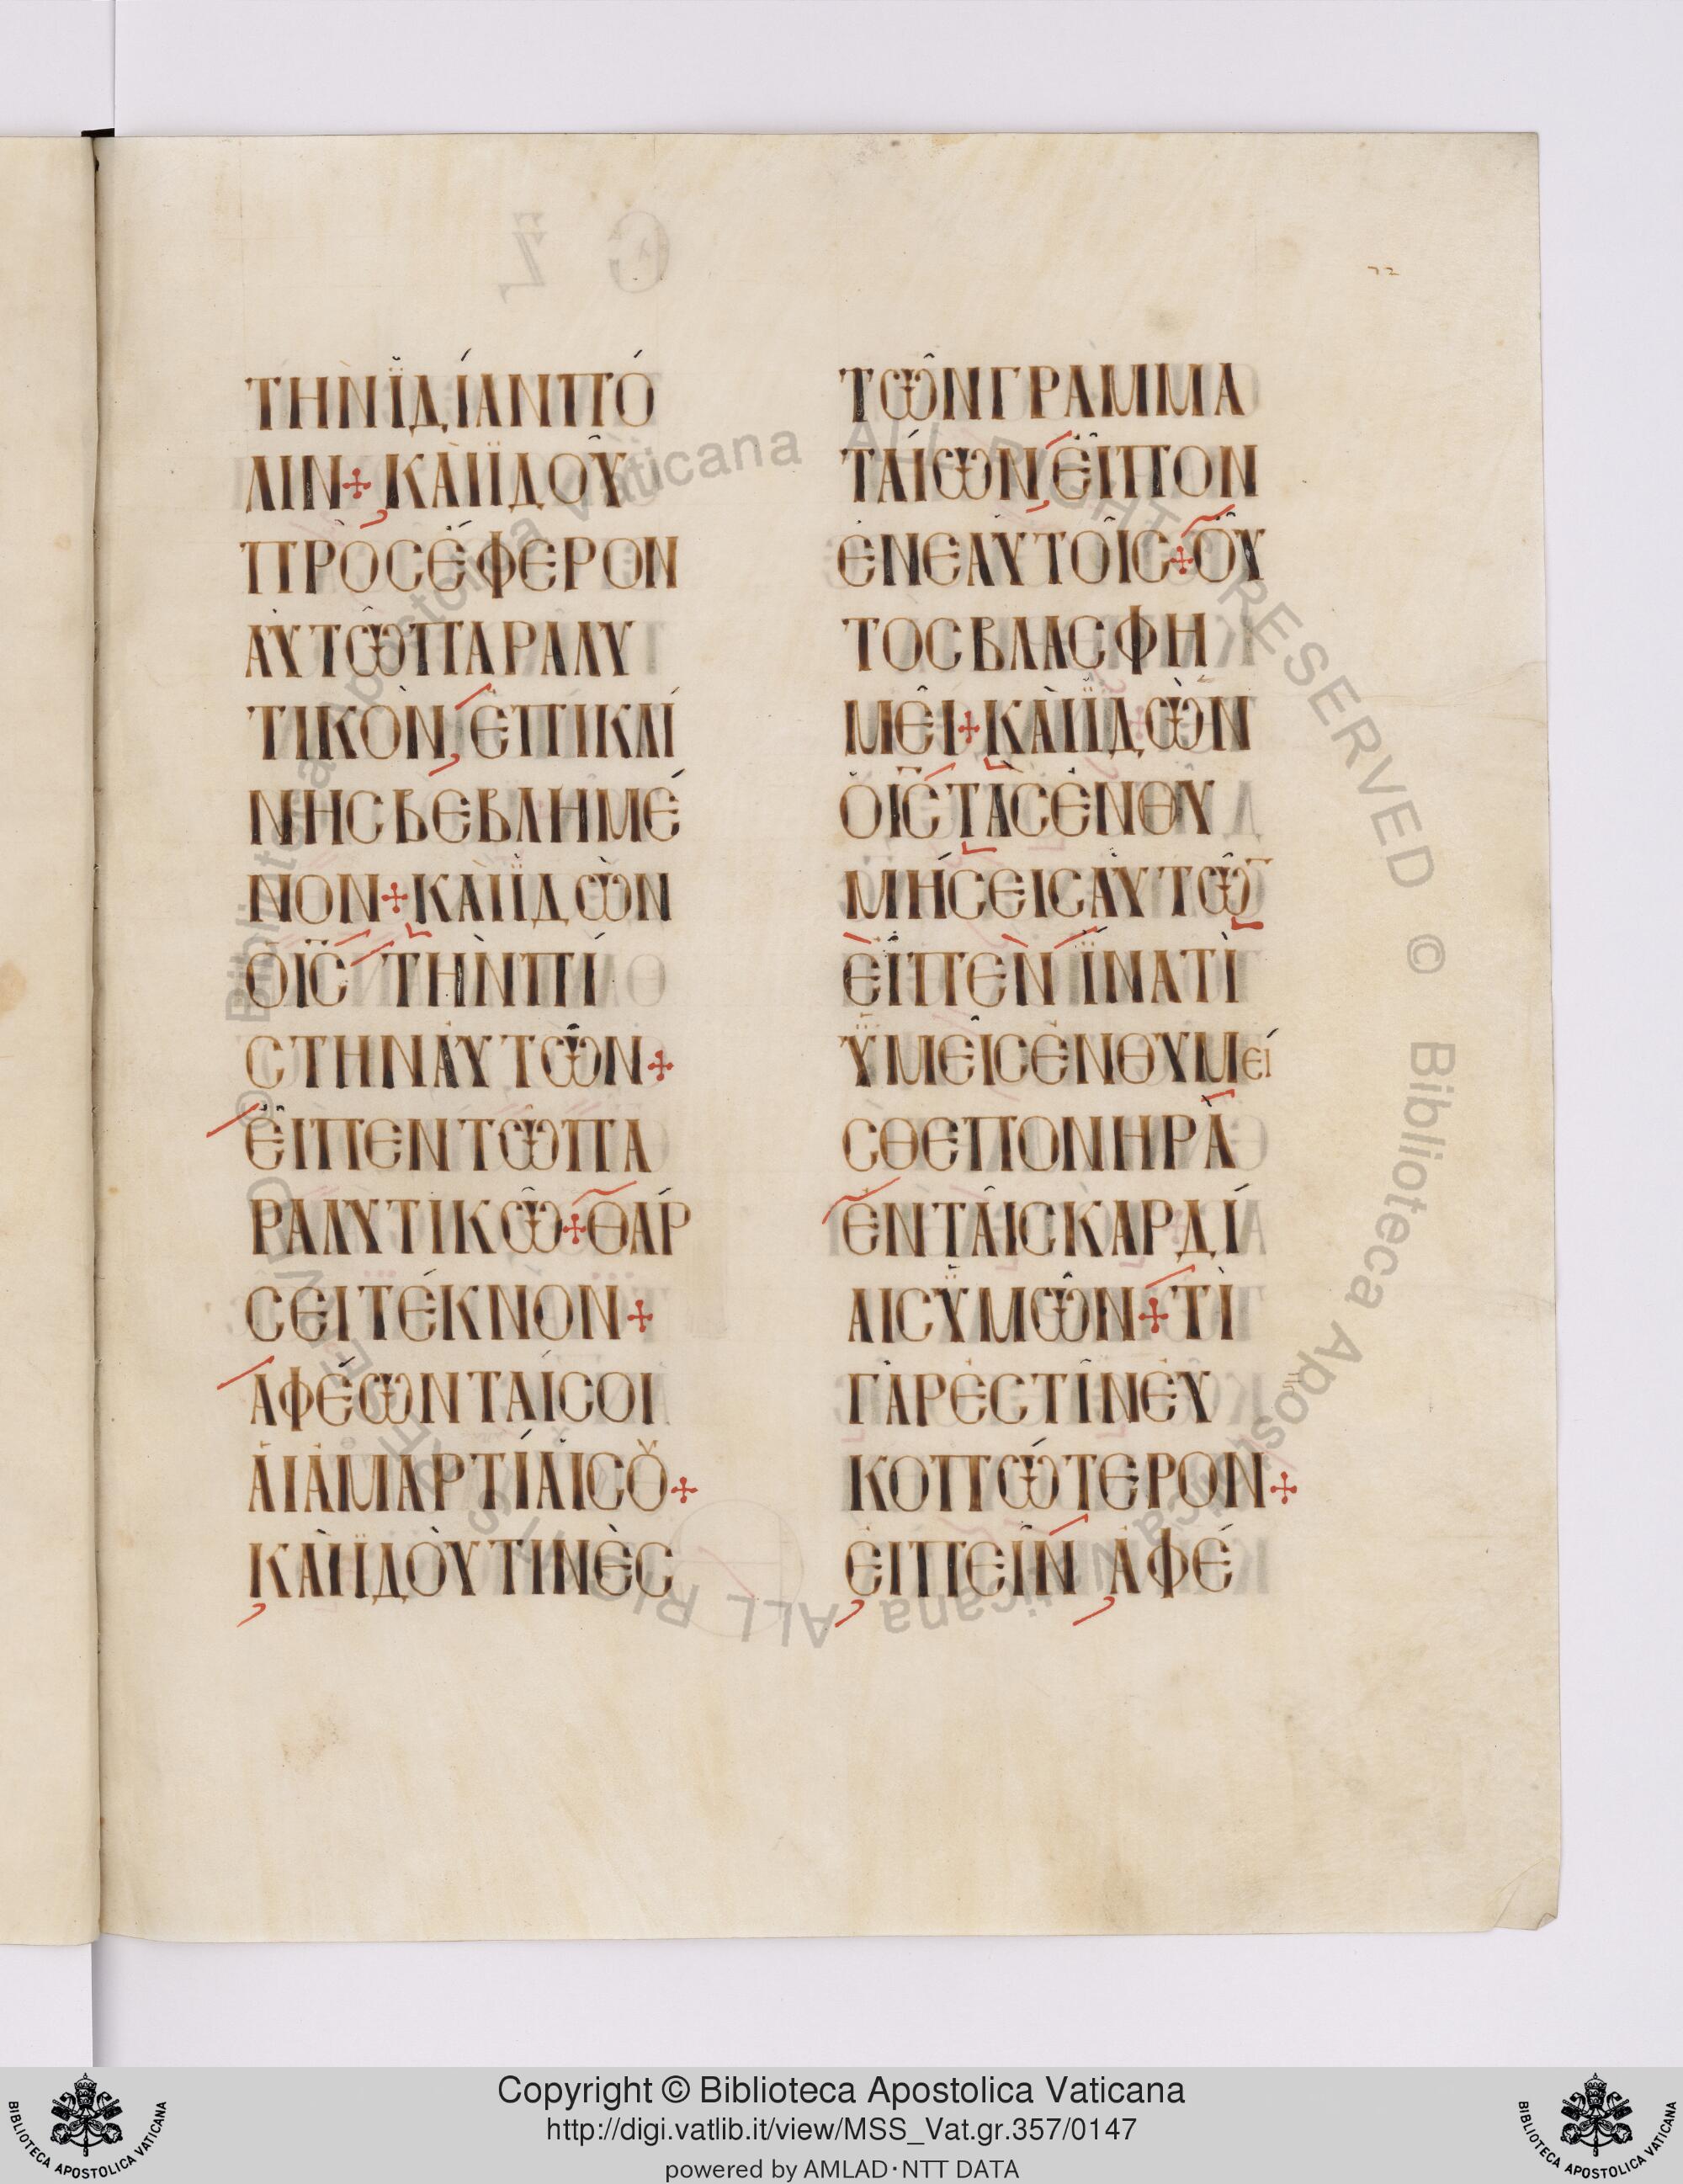 72
ΤΗΝ ΪΔΊΑΝ ΠΌ
ΛΙΝ + ΚΑῚ ΪΔΟῪ
ΠΡΟΣΈΦΕΡΟΝ
ΑΥ̓ΤΩ͂ ΠΑΡΑΛΥ
ΤΙΚῸΝ, ἘΠΙ ΚΛΊ
ΝΗC ΒΕΒΛΗΜΈ
ΝΟΝ + ΚΑῚ ΪΔῺΝ
Ὁ ΙC ΤῊΝ ΠΊ
CΤΗΝ ΑΥ̓ΤΩ͂Ν +
ΕἾΠΕΝ ΤΩ ΠΑ
ΡΑΛΥΤΙΚΩ͂ + ΘΆΡ
CΕΙ ΤΈΚΝΟΝ +
ἈΦΈΩΝΤΑΊ CΟΙ
ἉΙ ἉΜΑΡΤΊΑΙ CΟῨ +
ΚΑῚ ΪΔΟῪ ΤΙΝῈC
ΤΩ͂Ν ΓΡΑΜΜΑ
ΤΑΊΩΝ, ΕἾΠΟΝ
ἘΝ ΕΑΥΤΟΙ͂C + ΟὟ
ΤΟC ΒΛΑCΦΗ
ΜΕΙ͂ + ΚΑῚ ΪΔῺΝ
Ὁ ΙC ΤᾺC ἘΝΘΥ
ΜΉCΕΙC ΑΥ̓ΤΩ͂Ν
ΕἾΠΕΝ ΪΝΑΤῚ
ΫΜΕΙ͂C ἘΝΘΥΜΕΊ
CΘΕ ΠΟΝΗΡᾺ
ἘΝ ΤΑΙ͂C ΚΑΡΔΊ
ΑΙC ΫΜΩ͂Ν + ΤῚ
ΓΆΡ ἘCΤῙΝ ἘΥ
ΚΟΠΏΤΕΡΟΝ +
ἘΙΠΕΙ͂Ν, ἈΦΈ
© Biblioteca Apostolica Vaticana ALL RIGHTS RESERVED © Biblioteca Apostolica Vaticana ALL RIGHTS RESERVED
Copyright © Biblioteca Apostolica Vaticana
http://digi.vatlib.it/view/MSS_Vat.gr.357/0147
powered by AMLAD·NTT DATA
BIBLIOTECA APOSTOLICA VATICANA
BIBLIOTECA APOSTOLICA VATICANA